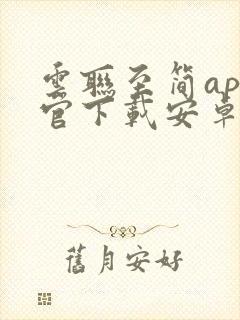 雲聯至简ap
官下載安卓
舊月安好